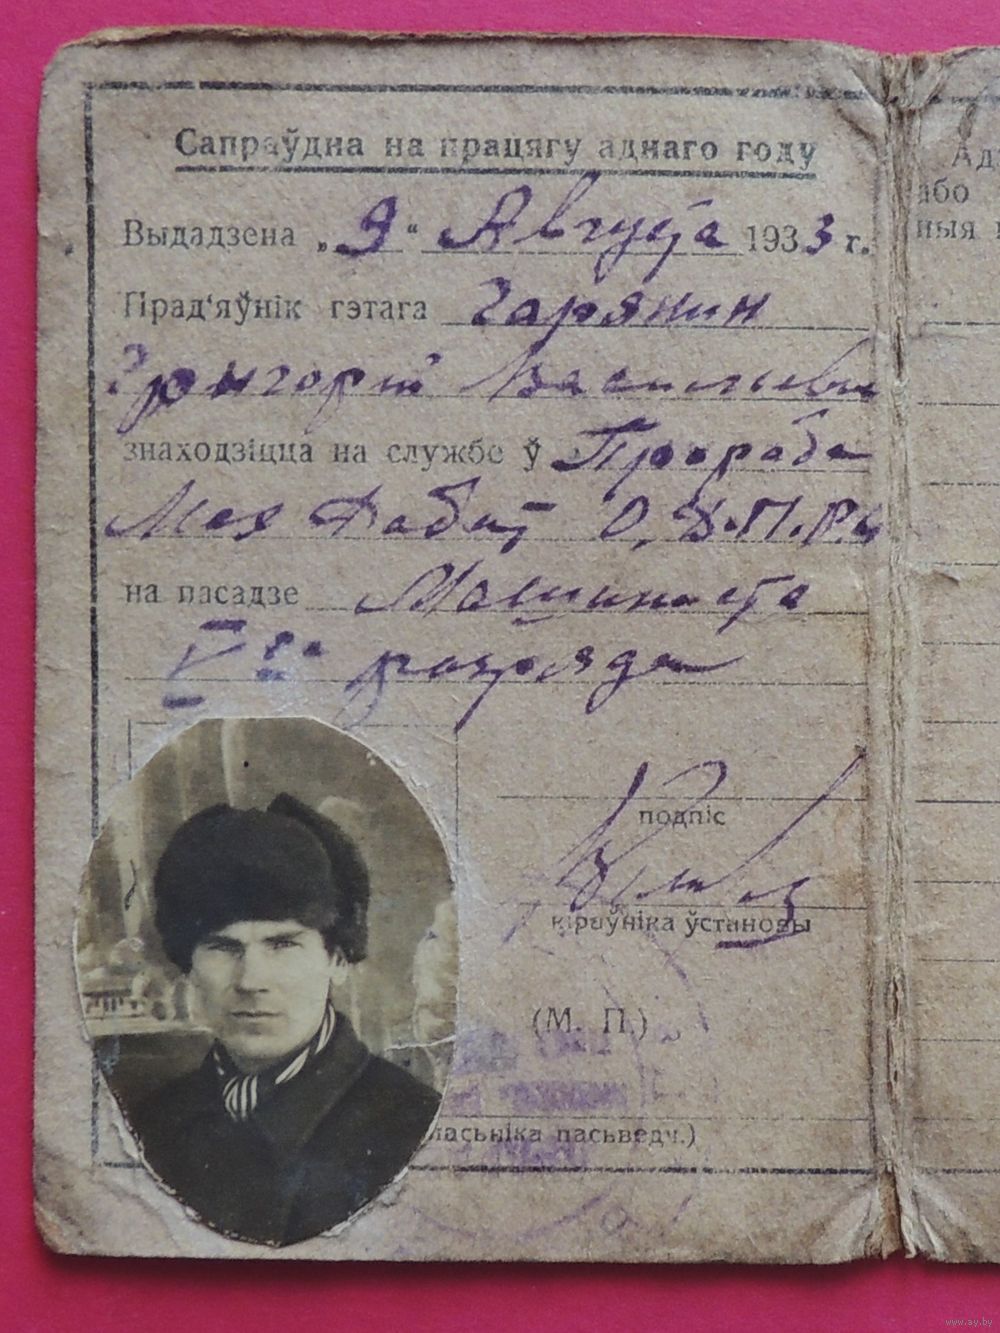 Сапраўдна на працягу аднаго году
Выдадзена „9“ Августа 1933 г.
Прад'яўнік гэтага Гарянин
Григорий Васильеви
знаходзіцца на службе ў Прораба
Мех О.Д.П.Р.
на пасадзе Машиниста
V го разряда
подпіс
кіраўніка ўстановы
(М. П.)
ласьніка пасьведч.)
або
ныя
www.ay.by